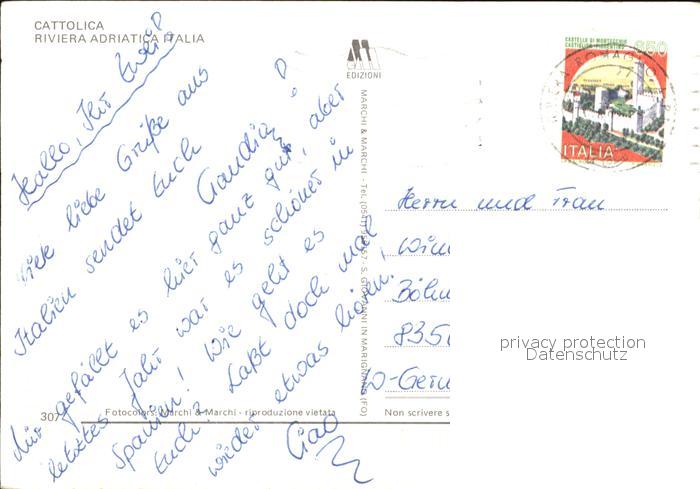 CATTOLICA
RIVIERA ADRIATICA ITALIA
EDIZIONI
CASTELLO DI MONTECCHIO
CASTIGLION FIORENTINO
850
ITALIA
Hallo, Ihr Zwei!
Viele liebe Grüße aus
Italien sendet Euch
Claudia!
Mir gefällt es hier ganz gut, aber
letztes Jahr war es schöner in
Spanien! Wie geht es
Euch? Laßt doch mal
wieder etwas hören!
Ciao
MARCHI & MARCHI - Tel. (0541)
S. GIOVANNI IN MARIGNANO (FO)
Herrn und Frau
Wim
Böhm
835
D-Germ
privacy protection
Datenschutz
307
Fotocolors Marchi & Marchi - riproduzione vietata
Non scrivere s